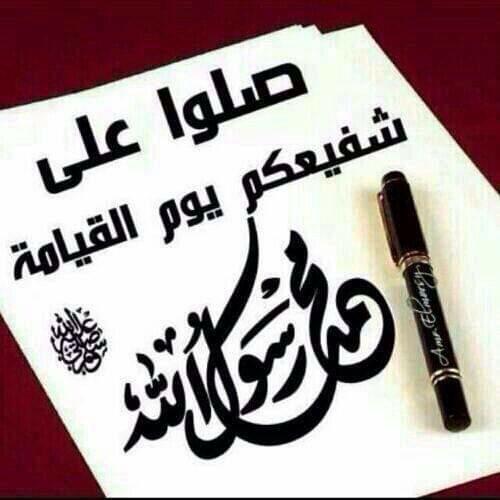 صلوا على
شفيعكم يوم القيامة
محمد رسول الله
صلى الله عليه وسلم
Amr Elmarey